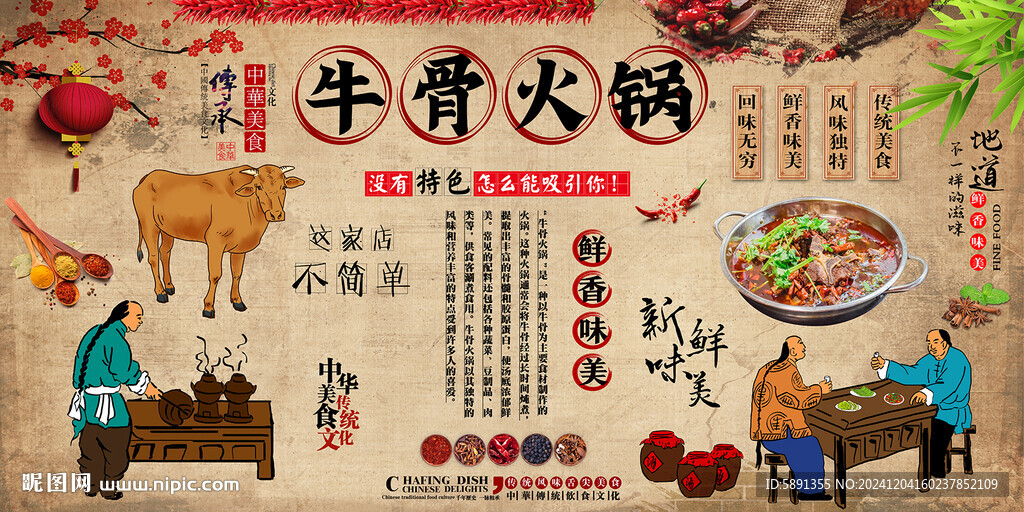 牛骨火锅
中華美食
文化
傳承
【中國傳統美食文化】
中華美食
没有特色怎么能吸引你!
回味无穷
鲜香味美
风味独特
传统美食
地道
不一样的滋味
鲜香味美
FINE FOOD
这家店
不简单
“牛骨火锅”是一种以牛骨为主要食材制作的
火锅。这种火锅通常会将牛骨经过长时间炖煮,
提取出丰富的骨髓和胶原蛋白,使汤底浓郁鲜
美。常见的配料还包括各种蔬菜、豆制品、肉
类等,供食客涮煮食用。牛骨火锅以其独特的
风味和营养丰富的特点受到许多人的喜爱。
鲜香味美
新鲜
味美
中华美食传统文化
酒
酒
酒
CHAFING DISH
CHINESE DELIGHTS
Chinese traditional food culture 千年历史 一脉相承
传统风味舌尖美食
中華傳統飲食文化
昵图网 www.nipic.com
ID:5891355 NO:20241204160237852109